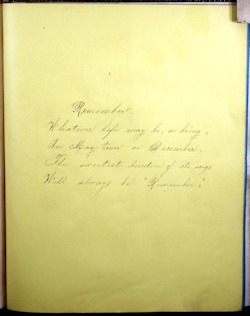 Remember!
Whatever life may be, or bring,
In May time or December.
The sweetest burden of its song
Will always be "Remember".